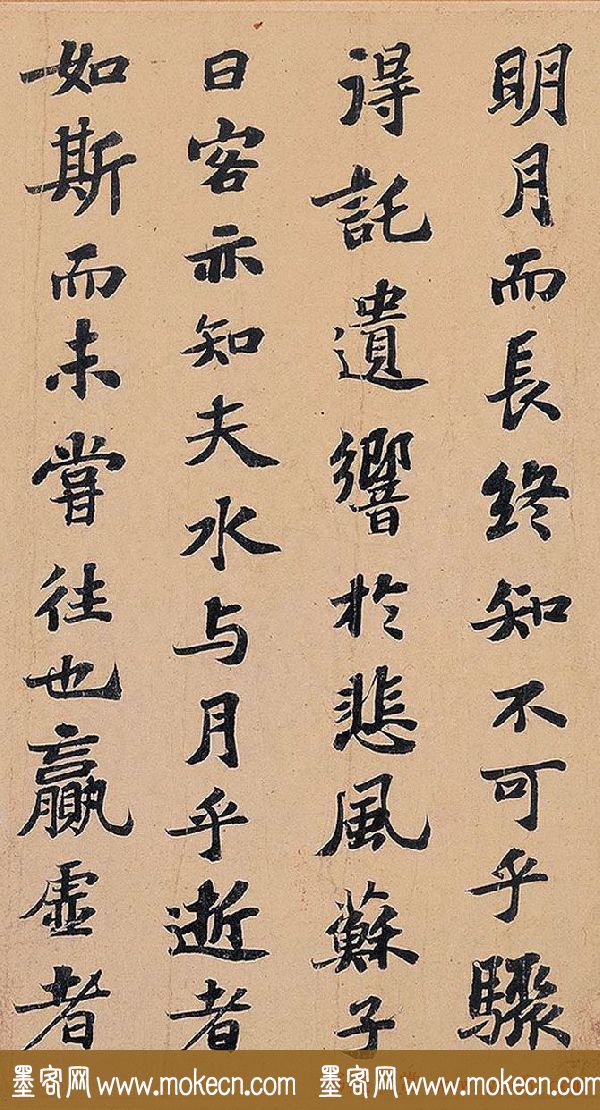 明月而長終知不可乎驟
得託遺響於悲風蘇子
曰客亦知夫水与月乎逝者
如斯而未嘗往也贏虛者
墨客网 www.mokecn.com 墨客网 www.mokecn.com